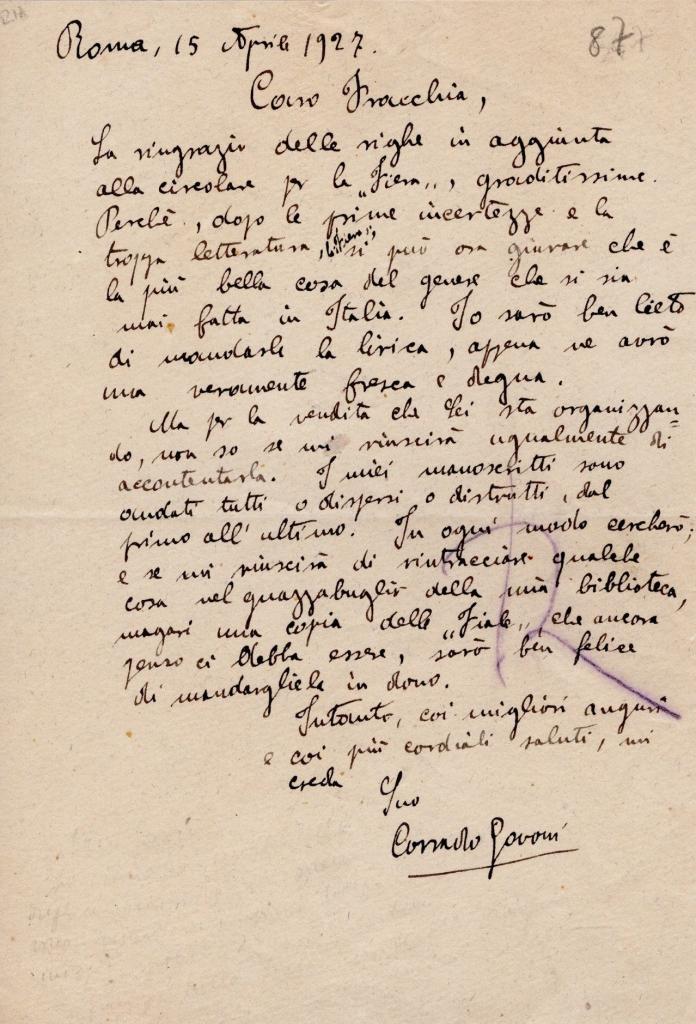 87
Roma, 15 Aprile 1927.
Caro Fracchia,
La ringrazio delle righe in aggiunta
alla circolare per la „Fiera„, graditissime.
Perchè, dopo le prime incertezze e la
troppa letteratura, si può ora giurare che è
la più bella cosa del genere che si sia
mai fatta in Italia. Io sarò ben lieto
di mandarle la lirica, appena ne avrò
una veramente fresca e degna.
Ma per la vendita che Lei sta organizzan=
do, non so se mi riuscirà ugualmente di
accontentarla. I miei manoscritti sono
andati tutti o dispersi o distrutti, dal
primo all'ultimo. In ogni modo cercherò;
e se mi riuscirà di rintracciare qualche
cosa nel guazzabuglio della mia biblioteca,
magari una copia delle „Fiale„, che ancora
penso ci debba essere, sarò ben felice
di mandargliela in dono.
Intanto, coi migliori auguri
e coi più cordiali saluti, mi
creda
Suo
Corrado Govoni
R